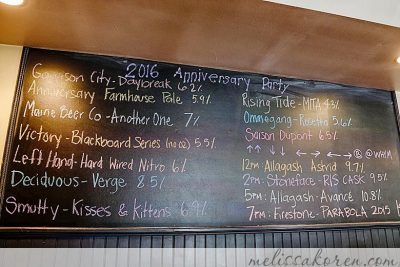 2016 Anniversary Party
Garrison City - Daybreak 6.2%
Anniversary Farmhouse Pale 5.9%
Maine Beer Co - Another One 7%
Victory - Blackboard Series (no 02) 5.5%
Left Hand - Hard Wired Nitro 6%
Deciduous - Verge 8.5%
Smutty - Kisses & Kittens 6.9%
Rising Tide - MITA 4.3%
Ommegang - Rosetta 5.6%
Saison Dupont 6.5%
↑ ↑ ↓ ↓ ← → ← → Ⓑ Ⓐ
12pm - Allagash Astrid 9.7%
2pm - Stoneface - RIS CASK 9.5%
5pm - Allagash - Avancé 10.8%
7pm - Firestone - PARABOLA 2015
melissakoren.com